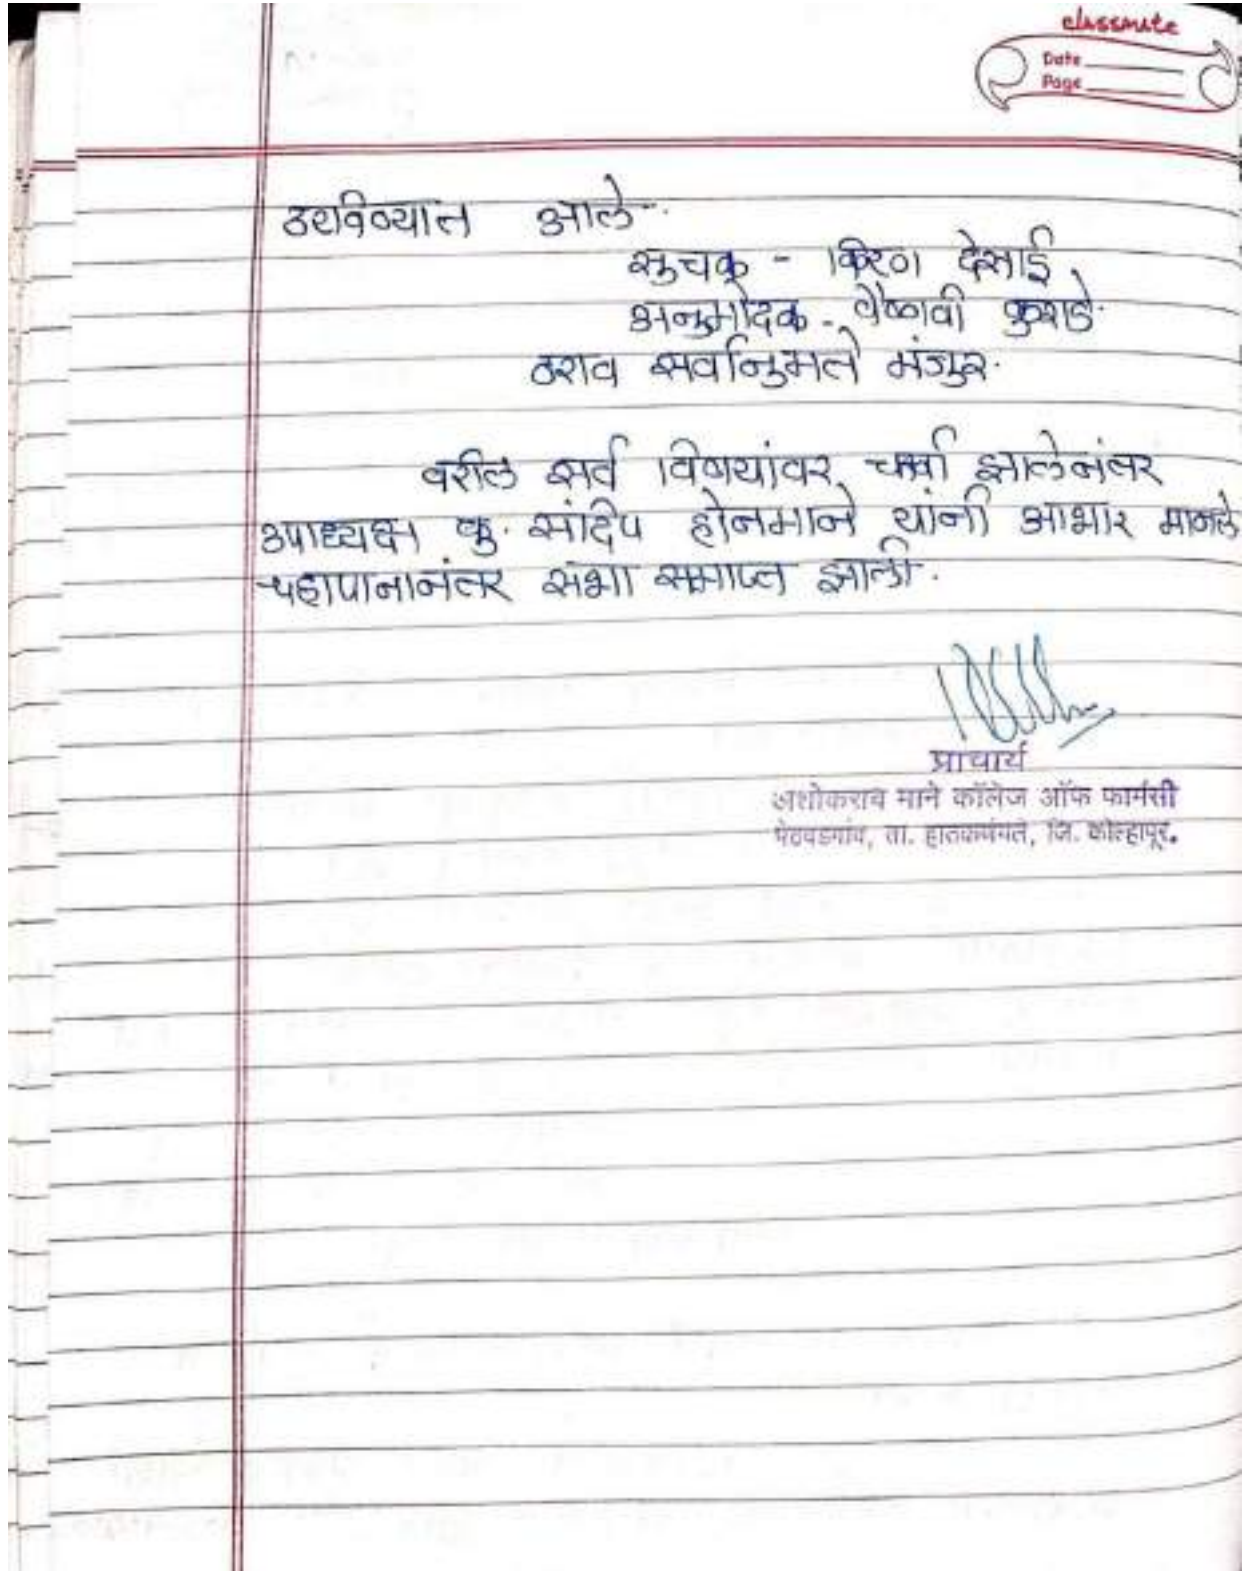 classmate
Date
Page
ठरविण्यात आले.
सुचक - किरण देसाई
अनुमोदक - वैष्णवी कुराडे.
ठराव सर्वानुमते मंजुर.
वरील सर्व विषयांवर चर्चा झालेनंतर
उपाध्यक्ष कु. संदिप होनमाने यांनी आभार मानले
चहापानानंतर सभा समाप्त झाली.
प्राचार्य
अशोकराव माने कॉलेज ऑफ फार्मसी
पेठवडगांव, ता. हातकणंगले, जि. कोल्हापूर.